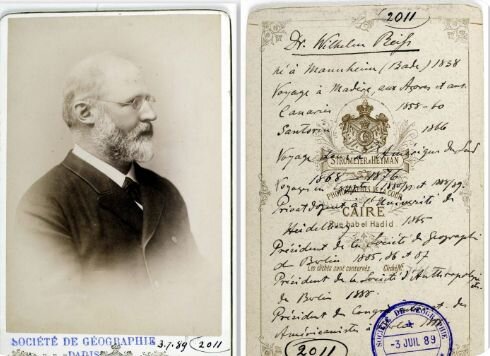 SOCIÉTÉ DE GÉOGRAPHIE
PARIS
3-7-89
2011
2011
Dr. Wilhelm Reiss
né à Mannheim (Bade) 1838
Voyage à Madère, aux Açores et aux
Canaries 1858-60
Santorin 1866
Voyage Amérique du Sud
STROMEYER & HEYMAN
1868 1876
Voyage en
PHOTOGRAPHES DE LA COUR
Privat docent à l'Université de
CAIRE
Heidelberg 1865
Rue Bab el Hadid
Président de la Société de Géographie
de Berlin 1885, 86 et 87
Les clichés sont conservés
Président de la Société d'Anthropologie
de Berlin 1888
Président du Congrès des
Américanistes
SOCIÉTÉ DE GÉOGRAPHIE
-3 JUIL 89
2011